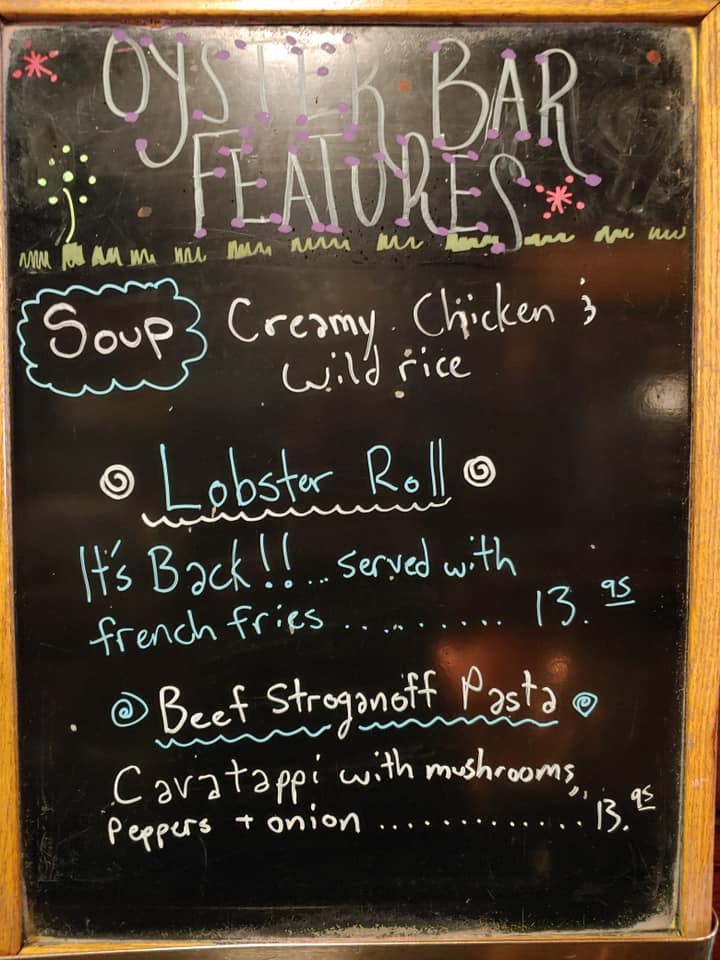 OYSTER BAR
FEATURES
Soup Creamy Chicken &
wild rice
Lobster Roll
It's Back!!... served with
french fries .......... 13.95
Beef Stroganoff Pasta
Cavatappi with mushrooms,
Peppers + onion ............. 13.95